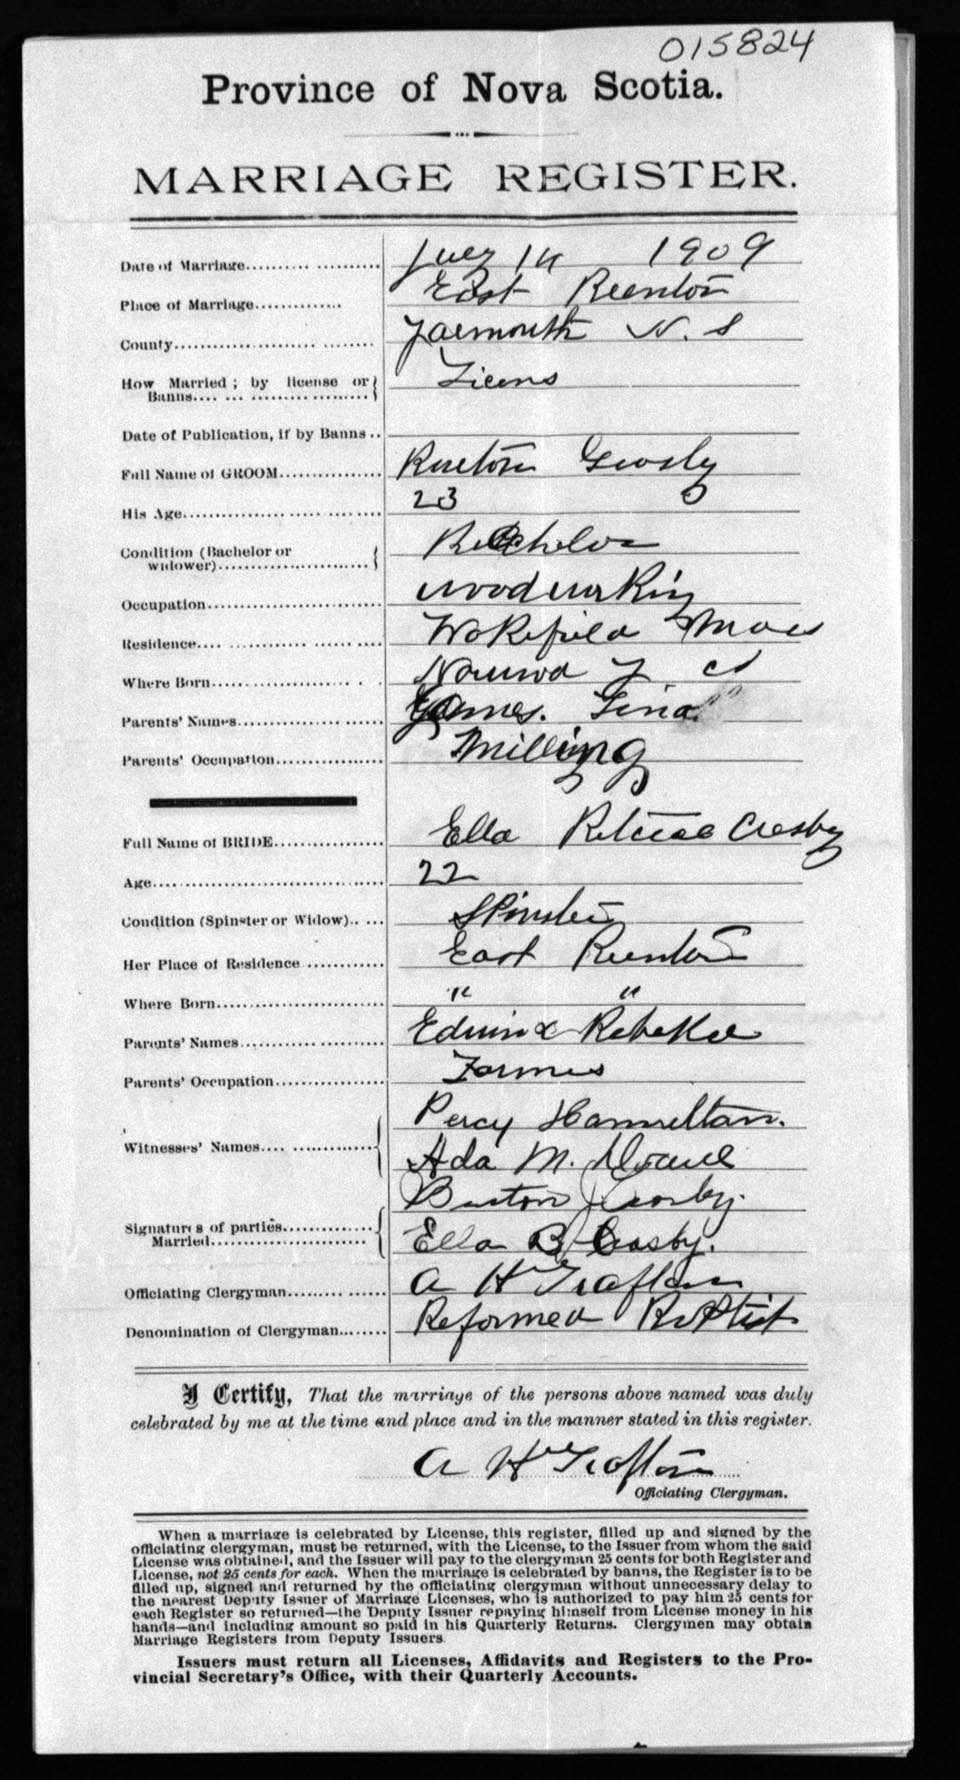 015824
Province of Nova Scotia.
MARRIAGE REGISTER.
Date of Marriage.................... July 14 1909
Place of Marriage............. East
County............................ Yarmouth N. S
How Married; by license or Licens
Banns.........................
Date of Publication, if by Banns..
Full Name of GROOM.................
His Age............................ 23
Condition (Bachelor or Bachelor
widower)........................
Occupation.......................... woodworking
Residence........................... Wakefield Mass
Where Born.......................
Parents' Names..................... James.
Parents' Occupation................ Milling
Full Name of BRIDE................. Ella Crosby
Age................................ 22
Condition (Spinster or Widow)..... Spinster
Her Place of Residence............ East
Where Born......................... " "
Parents' Names..................... Edwin & Rebeka
Parents' Occupation................ Farmer
Percy Hamilton.
Witnesses' Names.................. Ada M.
Burton Crosby.
Signatures of parties.............. Ella B Crosby.
Married.......................
Officiating Clergyman.............. A H Trafton
Denomination of Clergyman........ Reformed Baptist
I Certify, That the marriage of the persons above named was duly
celebrated by me at the time and place and in the manner stated in this register.
A H Trafton
Officiating Clergyman.
When a marriage is celebrated by License, this register, filled up and signed by the
officiating clergyman, must be returned, with the License, to the Issuer from whom the said
License was obtained, and the Issuer will pay to the clergyman 25 cents for both Register and
License, not 25 cents for each. When the marriage is celebrated by banns, the Register is to be
filled up, signed and returned by the officiating clergyman without unnecessary delay to
the nearest Deputy Issuer of Marriage Licenses, who is authorized to pay him 25 cents for
each Register so returned—the Deputy Issuer repaying himself from License money in his
hands—and including amount so paid in his Quarterly Returns. Clergymen may obtain
Marriage Registers from Deputy Issuers.
Issuers must return all Licenses, Affidavits and Registers to the Pro-
vincial Secretary's Office, with their Quarterly Accounts.